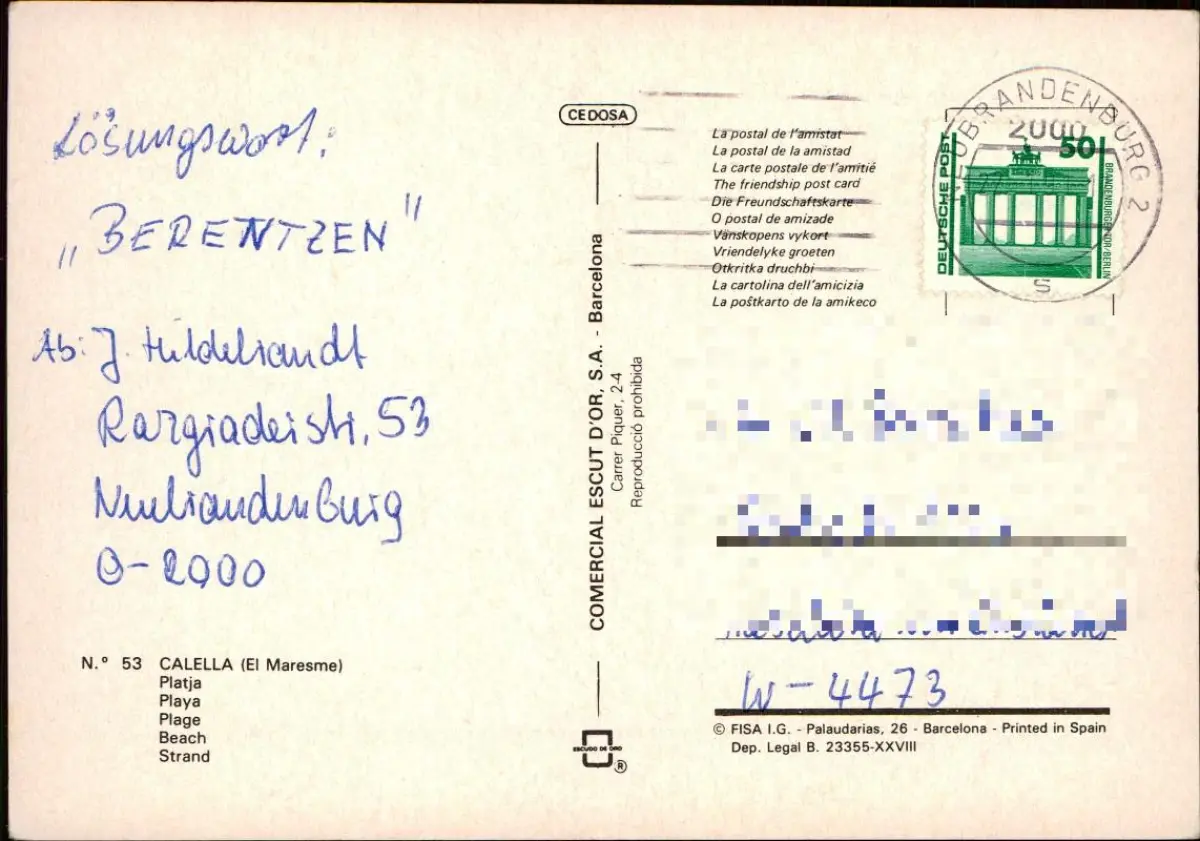 Lösungswort:
„BERENTZEN"
Ab: J. Hildebrandt
53
Neubrandenburg
O-2000
N.° 53 CALELLA (El Maresme)
Platja
Playa
Plage
Beach
Strand
CEDOSA
COMERCIAL ESCUT D'OR, S.A. - Barcelona
Carrer Piquer, 2-4
Reproducció prohibida
ESCUDO DE ORO
®
La postal de l'amistat
La postal de la amistad
La carte postale de l'amitié
The friendship post card
Die Freundschaftskarte
O postal de amizade
Vänskopens vykort
Vriendelyke groeten
Otkritka druchbi
La cartolina dell'amicizia
La poŝtkarto de la amikeco
NEUBRANDENBURG 2
2000
s
DEUTSCHE POST
50
BRANDENBURGER TOR/BERLIN
W-4473
© FISA I.G. - Palaudarias, 26 - Barcelona - Printed in Spain
Dep. Legal B. 23355-XXVIII